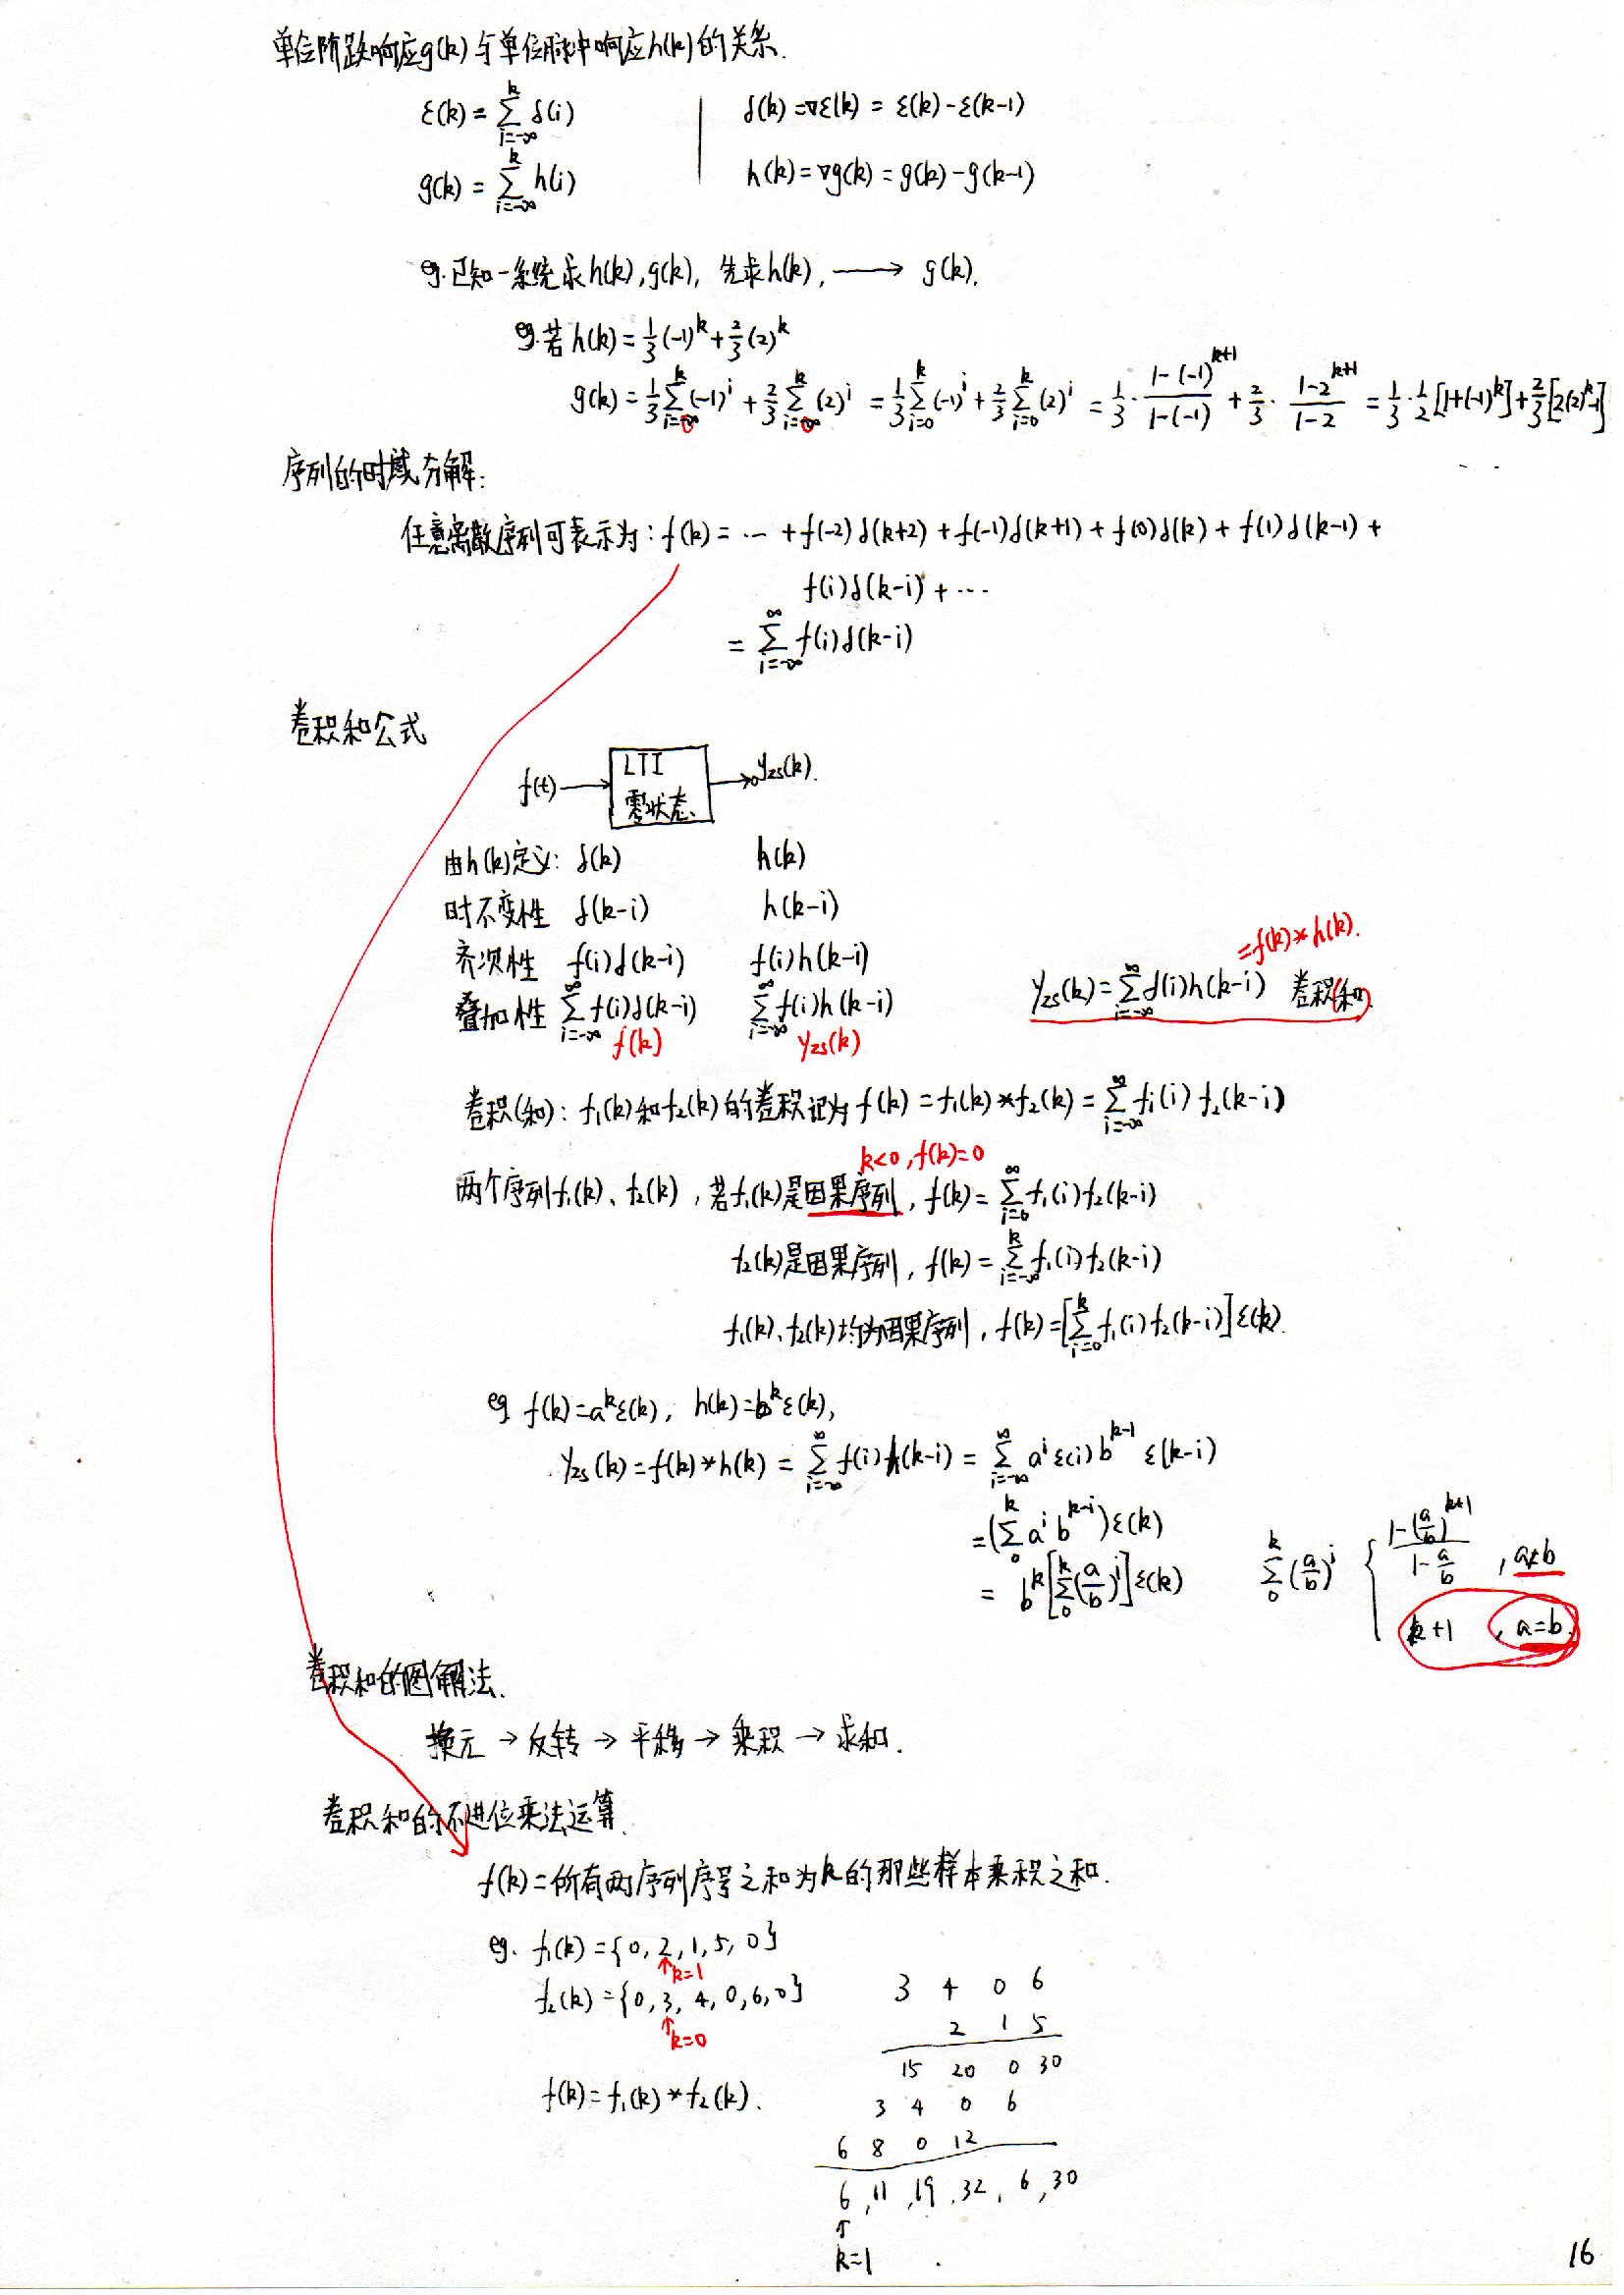 单位阶跃响应g(k)与单位脉冲响应h(k)的关系.
ε(k)=∑_{i=-∞}^{k} δ(i) | δ(k)=∇ε(k)=ε(k)-ε(k-1)
g(k)=∑_{i=-∞}^{k} h(i) | h(k)=∇g(k)=g(k)-g(k-1)
eg.已知一系统求h(k),g(k), 先求h(k), ⟶ g(k).
eg.若h(k)=1/3(-1)^k+2/3(2)^k
g(k)=1/3∑_{i=0}^{k}(-1)^i+2/3∑_{i=0}^{k}(2)^i=1/3∑_{i=0}^{k}(-1)^i+2/3∑_{i=0}^{k}(2)^i=1/3·(1-(-1)^{k+1})/(1-(-1))+2/3·(1-2^{k+1})/(1-2)=1/3·1/2[1+(-1)^k]+2/3[2(2)^k-1]
序列的时域分解:
任意离散序列可表示为:f(k)=…+f(-2)δ(k+2)+f(-1)δ(k+1)+f(0)δ(k)+f(1)δ(k-1)+
f(i)δ(k-i)+…
=∑_{i=-∞}^{∞} f(i)δ(k-i)
卷积和公式
f(t)→ LTI 零状态 →y_zs(k).
由h(k)定义: δ(k) h(k)
时不变性 δ(k-i) h(k-i)
齐次性 f(i)δ(k-i) f(i)h(k-i)
叠加性 ∑_{i=-∞}^{∞} f(i)δ(k-i) ∑_{i=-∞}^{∞} f(i)h(k-i)
f(k) y_zs(k)
=f(k)*h(k).
y_zs(k)=∑_{i=-∞}^{∞} f(i)h(k-i) 卷积(和)
卷积(和): f₁(k)和f₂(k)的卷积记为f(k)=f₁(k)*f₂(k)=∑_{i=-∞}^{∞} f₁(i)f₂(k-i)
k<0,f(k)=0
两个序列f₁(k)、f₂(k),若f₁(k)是因果序列,f(k)=∑_{i=0}^{∞} f₁(i)f₂(k-i)
f₂(k)是因果序列,f(k)=∑_{i=-∞}^{k} f₁(i)f₂(k-i)
f₁(k)、f₂(k)均为因果序列,f(k)=[∑_{i=0}^{k} f₁(i)f₂(k-i)]ε(k).
eg f(k)=a^kε(k), h(k)=b^kε(k),
y_zs(k)=f(k)*h(k)=∑_{i=-∞}^{∞} f(i)h(k-i)=∑_{i=-∞}^{∞} a^iε(i)b^{k-i} ε(k-i)
=(∑_0^k a^i b^{k-i})ε(k)
=b^k[∑_0^k(a/b)^i]ε(k) ∑_0^k(a/b)^i { (1-(a/b)^{k+1})/(1-a/b), a≠b
k+1, a=b.
卷积和的图解法.
换元→反转→平移→乘积→求和.
卷积和的不进位乘法运算.
f(k)=所有两序列序号之和为k的那些样本乘积之和.
eg. f₁(k)={0,2,1,5,0}
↑k=1
f₂(k)={0,3,4,0,6,0}
↑k=0
f(k)=f₁(k)*f₂(k).
3 4 0 6
2 1 5
15 20 0 30
3 4 0 6
6 8 0 12
6,11,19,32,6,30
↑
k=1
16